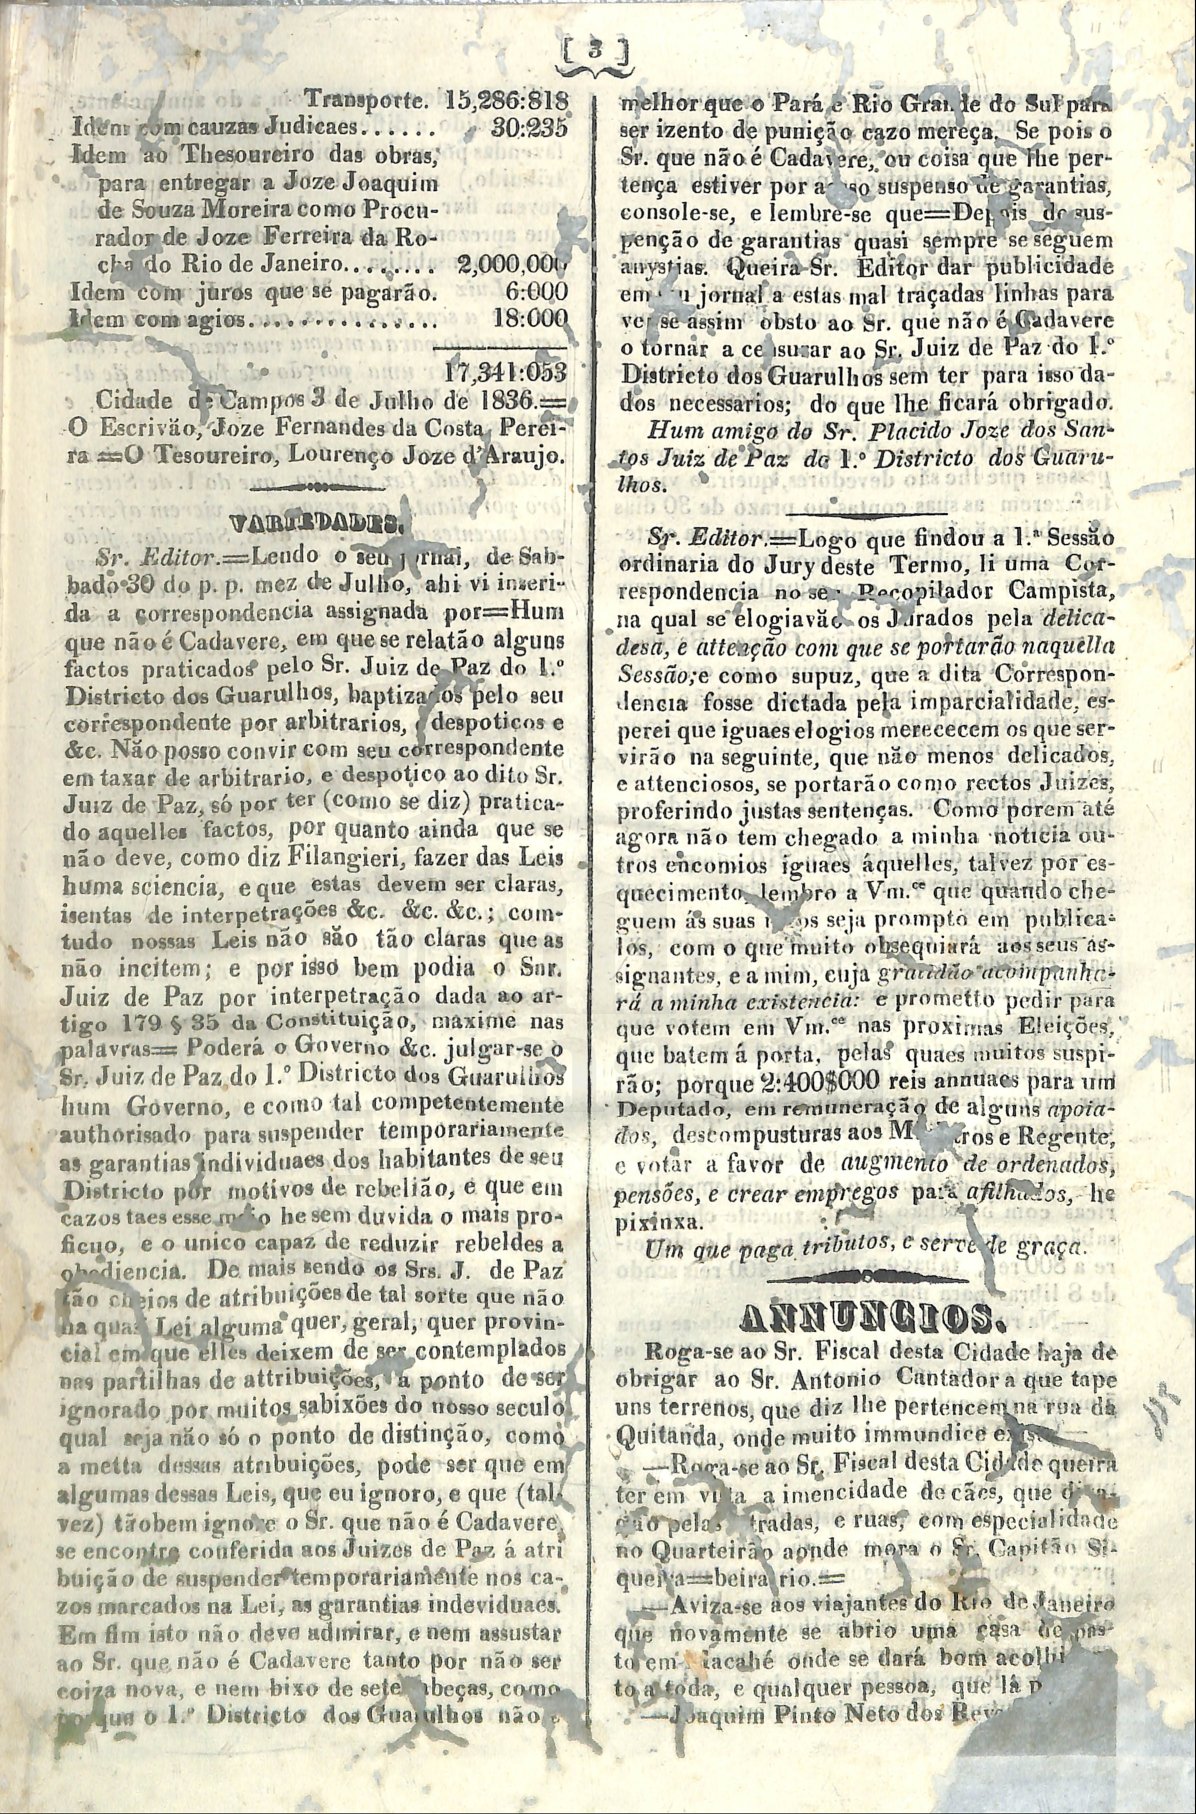 [ 3 ]
Transporte. 15,286:818
Idem com cauzas Judicaes...... 30:235
Idem ao Thesoureiro das obras,
para entregar a Joze Joaquim
de Souza Moreira como Procu-
rador de Joze Ferreira da Ro-
cha do Rio de Janeiro........ 2,000,000
Idem com juros que se pagarão. 6:000
Idem com agios............... 18:000
17,341:053
Cidade de Campos 3 de Julho de 1836.=
O Escrivão, Joze Fernandes da Costa Perei-
ra =O Tesoureiro, Lourenço Joze d'Araujo.
VARIEDADES.
Sr. Editor.=Lendo o seu jornal, de Sab-
bado 30 do p. p. mez de Julho, ahi vi inseri-
da a correspondencia assignada por=Hum
que não é Cadavere, em que se relatão alguns
factos praticados pelo Sr. Juiz de Paz do 1.º
Districto dos Guarulhos, baptizados pelo seu
correspondente por arbitrarios, despoticos e
&c. Não posso convir com seu correspondente
em taxar de arbitrario, e despotico ao dito Sr.
Juiz de Paz, só por ter (como se diz) pratica-
do aquelles factos, por quanto ainda que se
não deve, como diz Filangieri, fazer das Leis
huma sciencia, e que estas devem ser claras,
isentas de interpetrações &c. &c. &c.; com-
tudo nossas Leis não são tão claras que as
não incitem; e por isso bem podia o Snr.
Juiz de Paz por interpetração dada ao ar-
tigo 179 § 35 da Constituição, maxime nas
palavras= Poderá o Governo &c. julgar-se o
Sr. Juiz de Paz do 1.º Districto dos Guarulhos
hum Governo, e como tal competentemente
authorisado para suspender temporariamente
as garantias individuaes dos habitantes de seu
Districto por motivos de rebelião, e que em
cazos taes esse meio he sem duvida o mais pro-
ficuo, e o unico capaz de reduzir rebeldes a
obediencia. De mais sendo os Srs. J. de Paz
tão cheios de atribuições de tal sorte que não
ha quasi Lei alguma quer, geral, quer provin-
cial em que elles deixem de ser contemplados
nas partilhas de attribuições, a ponto de ser
ignorado por muitos sabixões do nosso seculo
qual seja não só o ponto de distinção, como
a metta dessas atribuições, pode ser que em
algumas dessas Leis, que eu ignoro, e que (tal-
vez) tãobem ignore o Sr. que não é Cadavere,
se encontre conferida aos Juizes de Paz á atri
buição de suspender temporariamente nos ca-
zos marcados na Lei, as garantias indeviduaes.
Em fim isto não deve admirar, e nem assustar
ao Sr. que não é Cadavere tanto por não ser
coiza nova, e nem bixo de sete cabeças, como
porque o 1.º Districto dos Guarulhos não é
melhor que o Pará e Rio Grande do Sul para
ser izento de punição cazo mereça. Se pois o
Sr. que não é Cadavere, ou coisa que lhe per-
tença estiver por acaso suspenso de garantias,
console-se, e lembre-se que=Depois de sus-
penção de garantias quasi sempre se seguem
anystias. Queira Sr. Editor dar publicidade
em seu jornal a estas mal traçadas linhas para
ver se assim obsto ao Sr. que não é Cadavere
o tornar a censurar ao Sr. Juiz de Paz do 1.º
Districto dos Guarulhos sem ter para isso da-
dos necessarios; do que lhe ficará obrigado.
Hum amigo do Sr. Placido Joze dos San-
tos Juiz de Paz do 1.º Districto dos Guaru-
lhos.
Sr. Editor.=Logo que findou a 1.ª Sessão
ordinaria do Jury deste Termo, li uma Cor-
respondencia no seu Recopilador Campista,
na qual se elogiavão os Jurados pela delica-
desa, e attenção com que se portarão naquella
Sessão; e como supuz, que a dita Correspon-
dencia fosse dictada pela imparcialidade, es-
perei que iguaes elogios merececem os que ser-
virão na seguinte, que não menos delicados,
e attenciosos, se portarão como rectos Juizes,
proferindo justas sentenças. Como porem até
agora não tem chegado a minha noticia ou-
tros encomios iguaes áquelles, talvez por es-
quecimento, lembro a Vm.ce que quando che-
guem ás suas mãos seja prompto em publica-
los, com o que muito obsequiará aos seus as-
signantes, e a mim, cuja gratidão acompanha-
rá a minha existencia: e prometto pedir para
que votem em Vm.ce nas proximas Eleições,
que batem á porta, pelas quaes muitos suspi-
rão; porque 2:400$000 reis annuaes para um
Deputado, em remuneração de alguns apoia-
dos, descomposturas aos Ministros e Regente,
e votar a favor de augmento de ordenados,
pensões, e crear empregos para afilhados, he
pixinxa.
Um que paga tributos, e serve de graça.
ANNUNCIOS.
Roga-se ao Sr. Fiscal desta Cidade haja de
obrigar ao Sr. Antonio Cantadora que tape
uns terrenos, que diz lhe pertencem na rua da
Quitanda, onde muito immundice existe—
—Roga-se ao Sr. Fiscal desta Cidade queira
ter em vista a imencidade de cães, que
pelas estradas, e ruas, com especialidade
no Quarteirão aonde mora o Sr. Capitão Si-
queira=beira rio.=
—Aviza-se aos viajantes do Rio de Janeiro
que novamente se abrio uma casa de pas-
to em Macahé onde se dará bom
to a toda, e qualquer pessoa, que lá
—Joaquim Pinto Neto dos